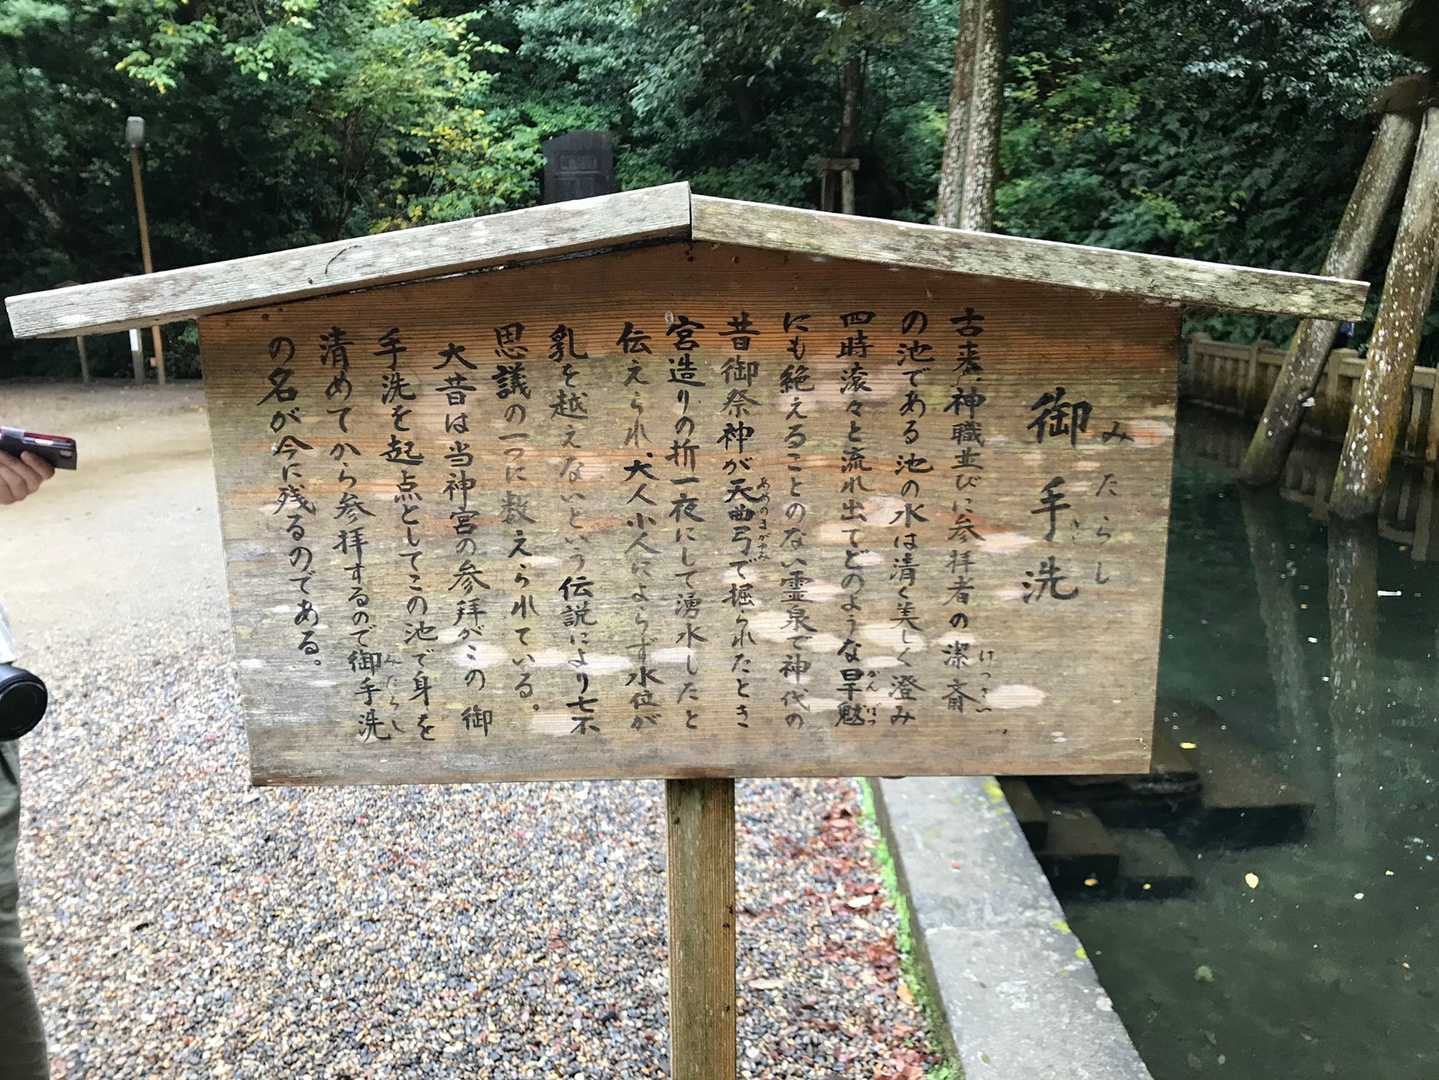 御手洗
みたらし
古来、神職並びに参拝者の潔斎
けっさい
の池である池の水は清く美しく澄み
四時滾々と流れ出てどのような旱魃
かんばつ
にも絶えることのない霊泉で神代の
昔御祭神が天曲弓で掘られたとき
宮造りの折一夜にして湧水したと
伝えられ、大人小人によらず水位が
乳を越えないという伝説により七不
思議の一つに数えられている。
大昔は当神宮の参拝がこの御
手洗を起点としてこの池で身を
清めてから参拝するので御手洗
みたらし
の名が今に残るのである。